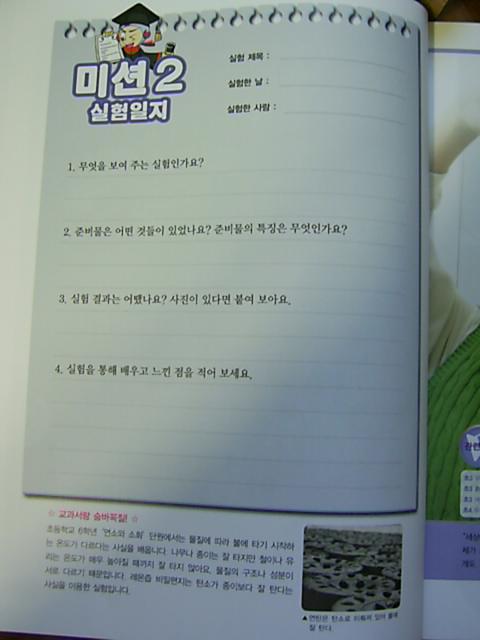 미션 2
실험일지
실험 제목 :
실험한 날 :
실험한 사람 :
1. 무엇을 보여 주는 실험인가요?
2. 준비물은 어떤 것들이 있었나요? 준비물의 특징은 무엇인가요?
3. 실험 결과는 어땠나요? 사진이 있다면 붙여 보아요.
4. 실험을 통해 배우고 느낀 점을 적어 보세요.
☆ 교과서랑 숨바꼭질! ☆
초등학교 6학년 '연소와 소화' 단원에서는 물질에 따라 불에 타기 시작하
는 온도가 다르다는 사실을 배웁니다. 나무나 종이는 잘 타지만 철이나 유
리는 온도가 매우 높아질 때까지 잘 타지 않아요. 물질의 구조나 성분이
서로 다르기 때문입니다. 레몬즙 비밀편지는 탄소가 종이보다 잘 탄다는
사실을 이용한 실험입니다.
▲ 연탄은 탄소로 이뤄져 있어 불에
잘 탄다.
관련
"세상